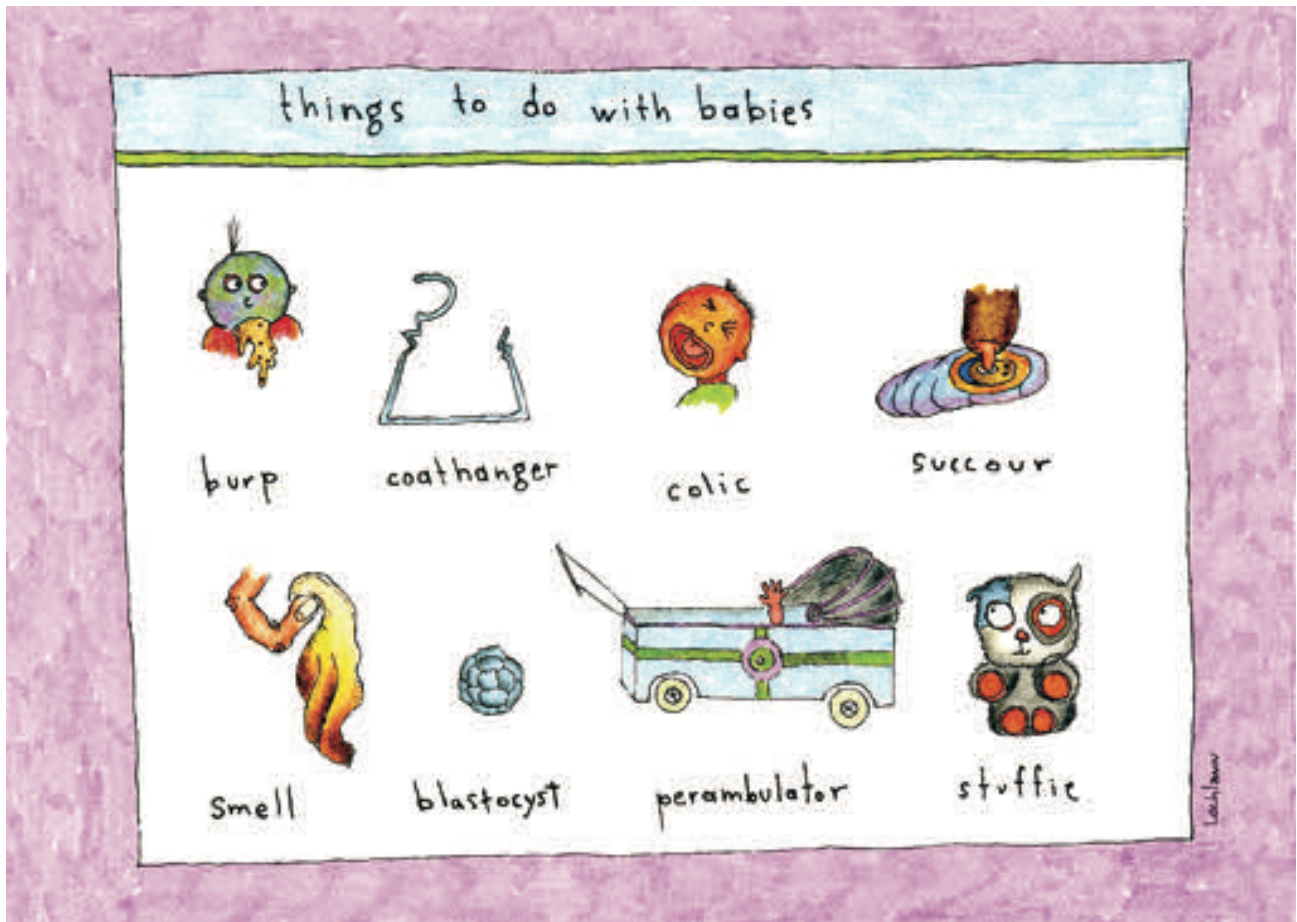 things to do with babies
burp
coathanger
colic
succour
smell
blastocyst
perambulator
stuffie